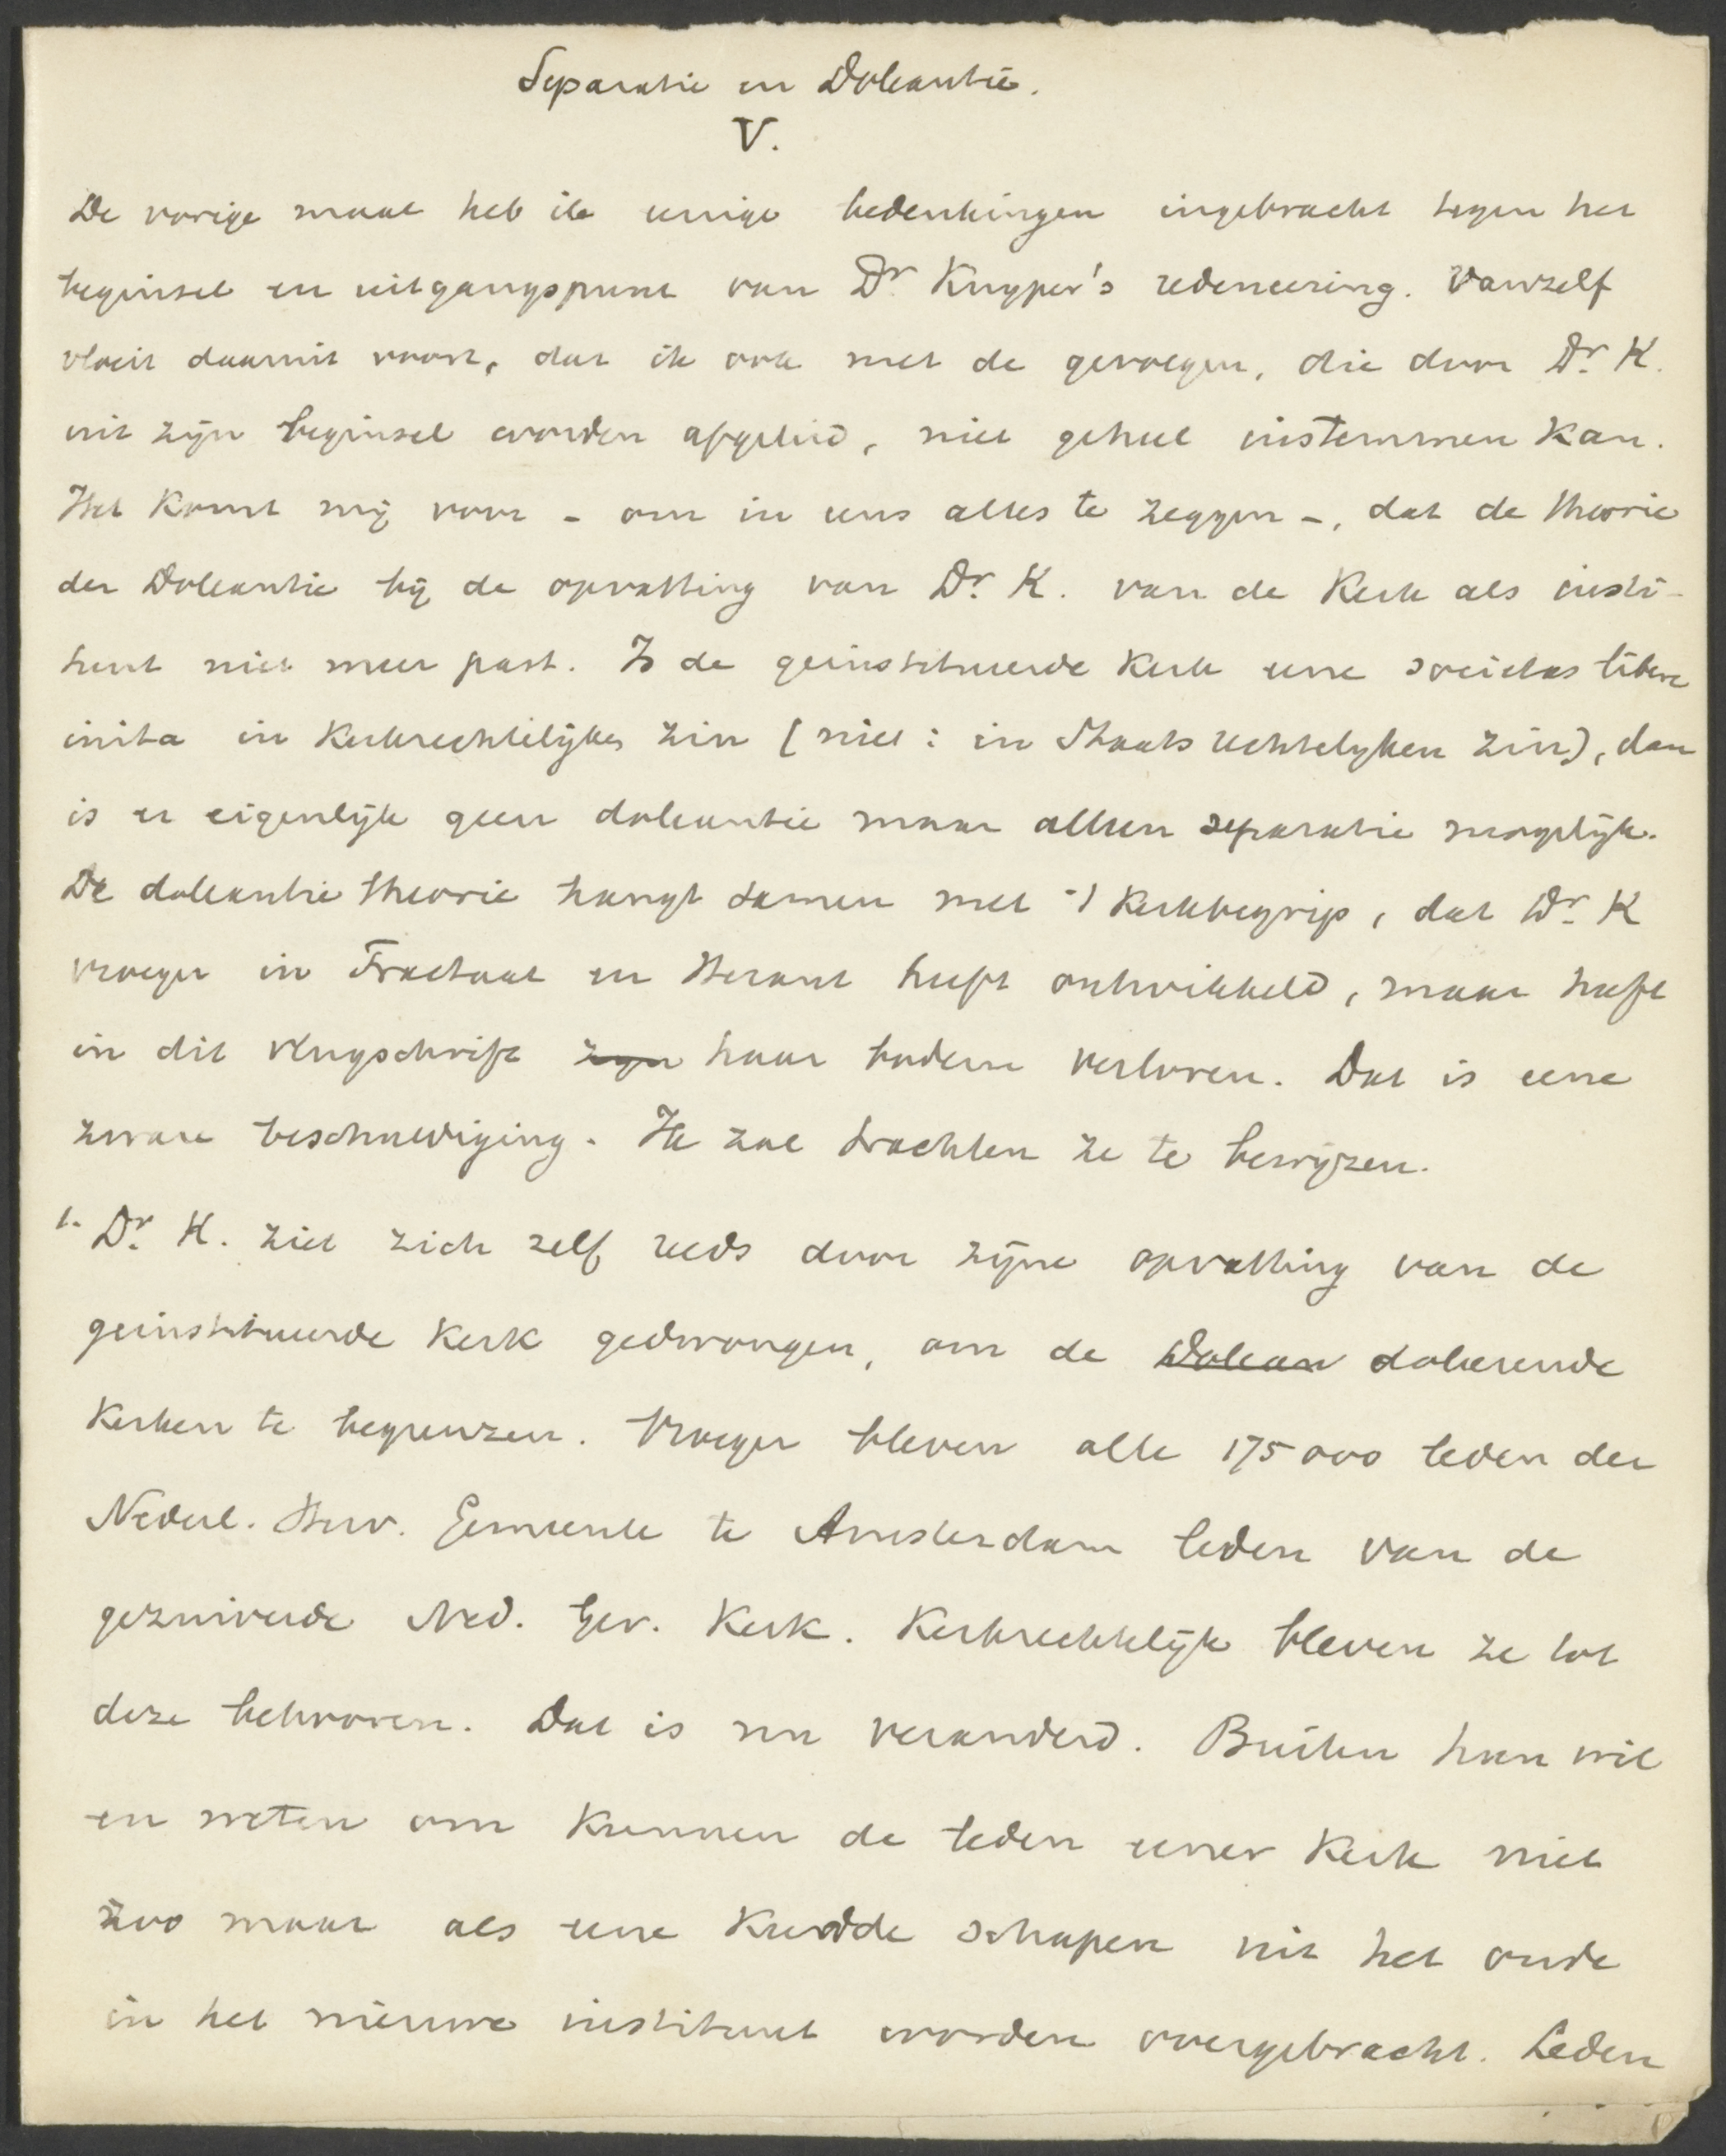 Separatie en Doleantie.
V.
De vorige maal heb ik eenige bedenkingen ingebracht tegen het
beginsel en uitgangspunt van Dr Kuyper's redeneering. Vanzelf
vloeit daaruit voort, dat ik ook met de gevolgen, die door Dr. K.
uit zijn beginsel worden afgeleid, niet geheel instemmen kan.
Het komt mij voor - om in eens alles te zeggen -, dat de theorie
der Doleantie bij de opvatting van Dr. K. van de Kerk als insti-
tuut niet meer past. Is de geinstitueerde Kerk eene societas libere
inita in Kerkrechtelijken zin (niet: in Staatsrechtelyken zin), dan
is er eigenlijk geen doleantie maar alleen separatie mogelijk.
De doleantie theorie hangt samen met 't Kerkbegrip, dat Dr. K
vroeger in Tractaat en Heraut heeft ontwikkeld, maar heeft
in dit vlugschrift zyn haar bodem verloren. Dat is eene
zware beschuldiging. Ik zal trachten ze te bewijzen.
1. Dr. K. ziet zich zelf reeds door zijne opvatting van de
geinstitueerde Kerk gedwongen, om de Dolean doleerende
Kerken te begrenzen. Vroeger bleven alle 175000 leden der
Nederl. Herv. Gemeente te Amsterdam leden van de
gezuiverde Ned. Ger. Kerk. Kerkrechtelijk bleven ze tot
deze behooren. Dat is nu veranderd. Buiten hun wil
en weten om kunnen de leden eener Kerk niet
zoo maar als eene Kudde schapen uit het oude
in het nieuwe instituut worden overgebracht. Leden